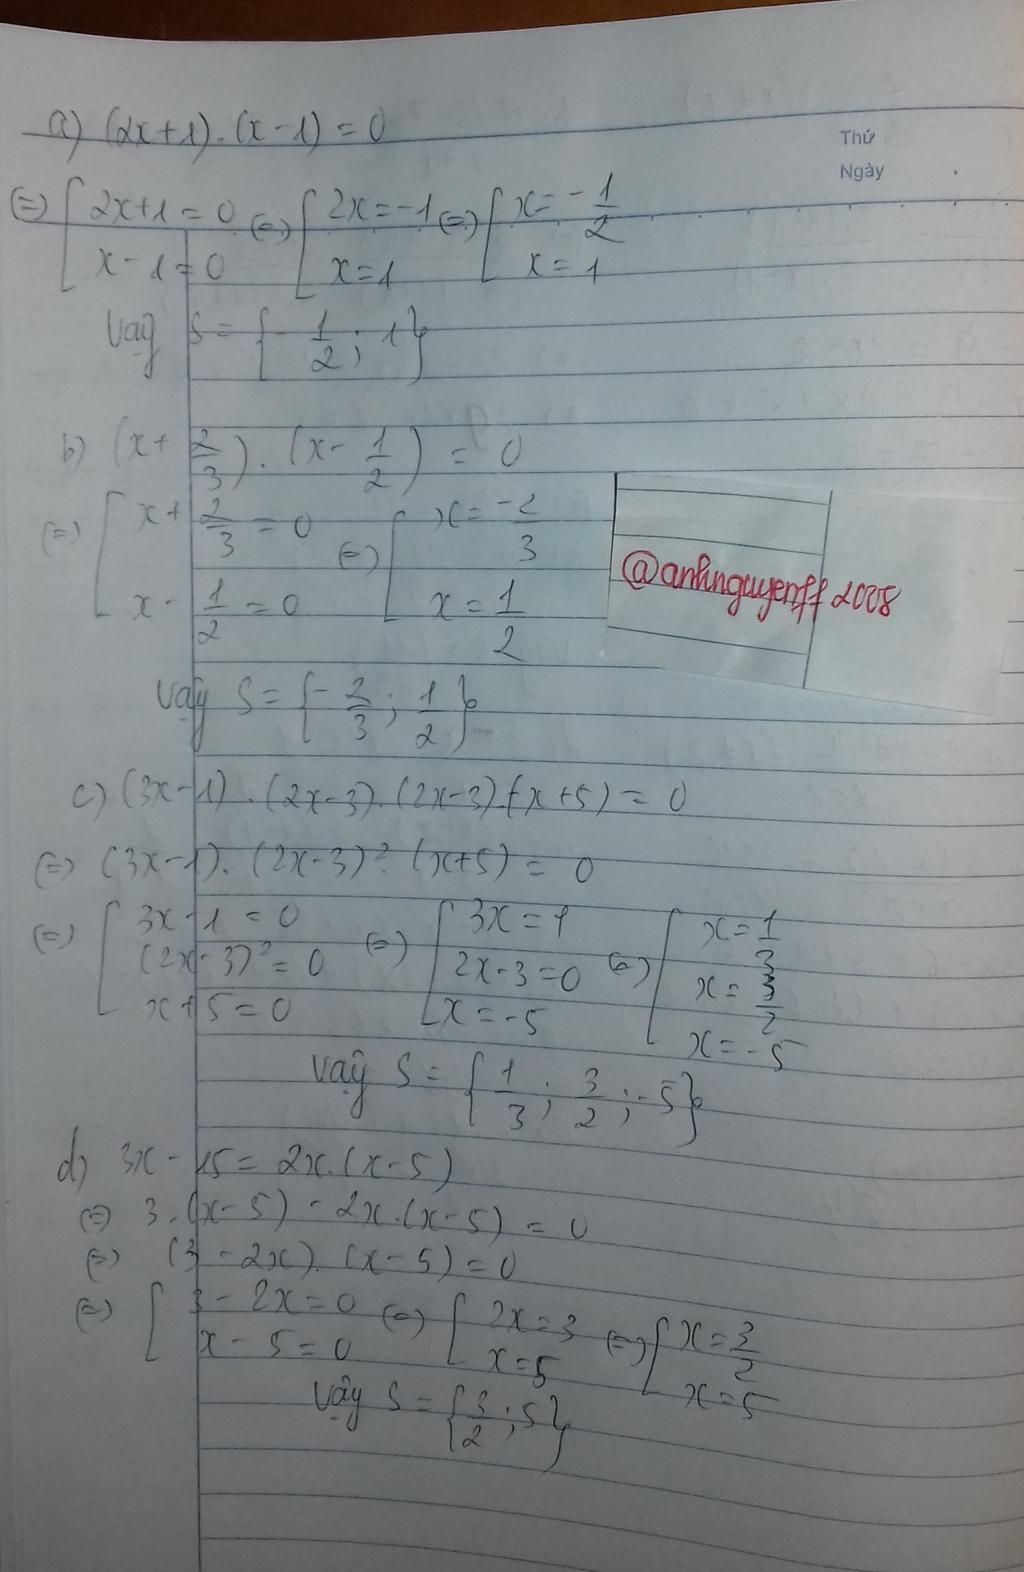 a) (2x+1).(x-1) = 0
Thứ
Ngày
(=) [ 2x+1 = 0 (=) [ 2x = -1 (=) [ x = -1/2
x - 1 = 0 x = 1 x = 1
Vậy S = {-1/2; 1}
b) (x + 2/3).(x - 1/2) = 0
(=) [ x + 2/3 = 0 (=) [ x = -2/3
x - 1/2 = 0 x = 1/2
@anhnguyenff2008
Vậy S = {-2/3; 1/2}
c) (3x-1).(2x-3).(2x-3).(x+5) = 0
(=) (3x-1).(2x-3)².(x+5) = 0
(=) [ 3x-1 = 0 (=) [ 3x = 1 (=) [ x = 1/3
(2x-3)² = 0 2x-3 = 0 x = 3/2
x+5 = 0 x = -5 x = -5
Vậy S = {1/3; 3/2; -5}
d) 3x - 15 = 2x.(x-5)
(=) 3.(x-5) - 2x.(x-5) = 0
(=) (3-2x).(x-5) = 0
(=) [ 3 - 2x = 0 (=) [ 2x = 3 (=) [ x = 3/2
x - 5 = 0 x = 5 x = 5
Vậy S = {3/2; 5}